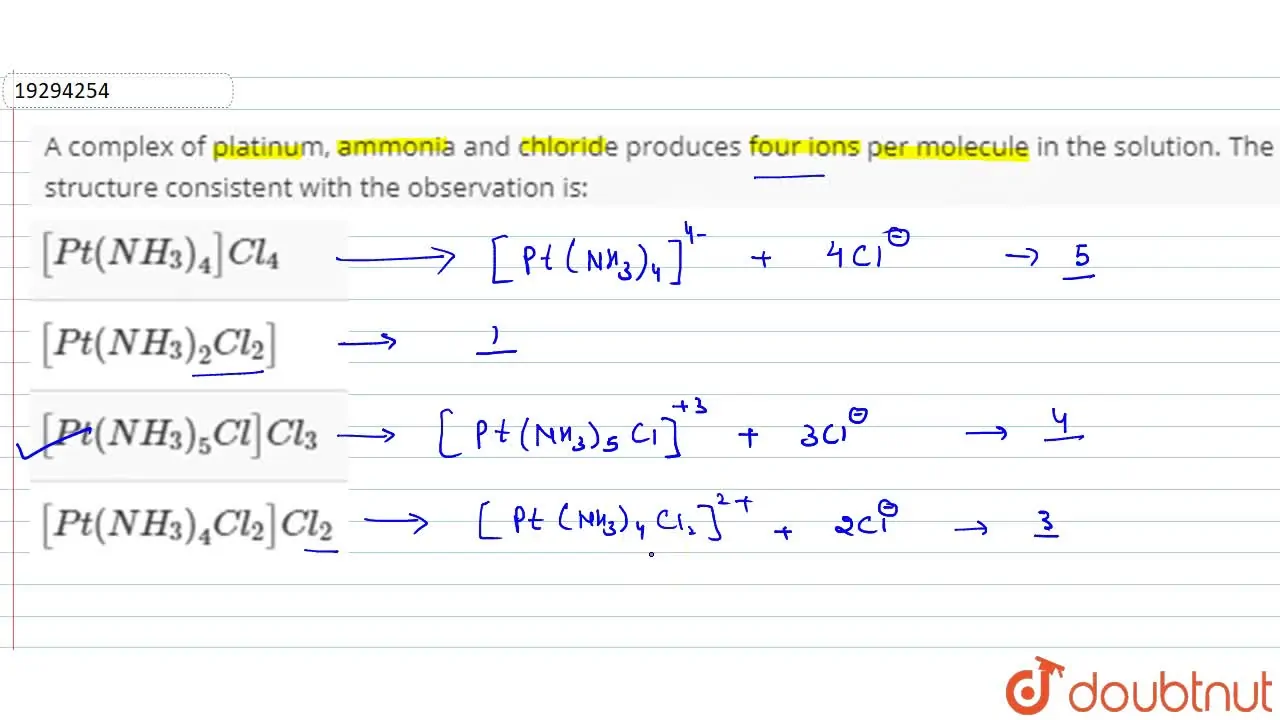 19294254
A complex of platinum, ammonia and chloride produces four ions per molecule in the solution. The
structure consistent with the observation is:
[Pt(NH₃)₄]Cl₄ ⟶ [Pt(NH₃)₄]⁴⁻ + 4Cl⊖ → 5
[Pt(NH₃)₂Cl₂] → 1
✓ [Pt(NH₃)₅Cl]Cl₃ → [Pt(NH₃)₅Cl]⁺³ + 3Cl⊖ → 4
[Pt(NH₃)₄Cl₂]Cl₂ → [Pt(NH₃)₄Cl₂]²⁺ + 2Cl⊖ → 3
doubtnut